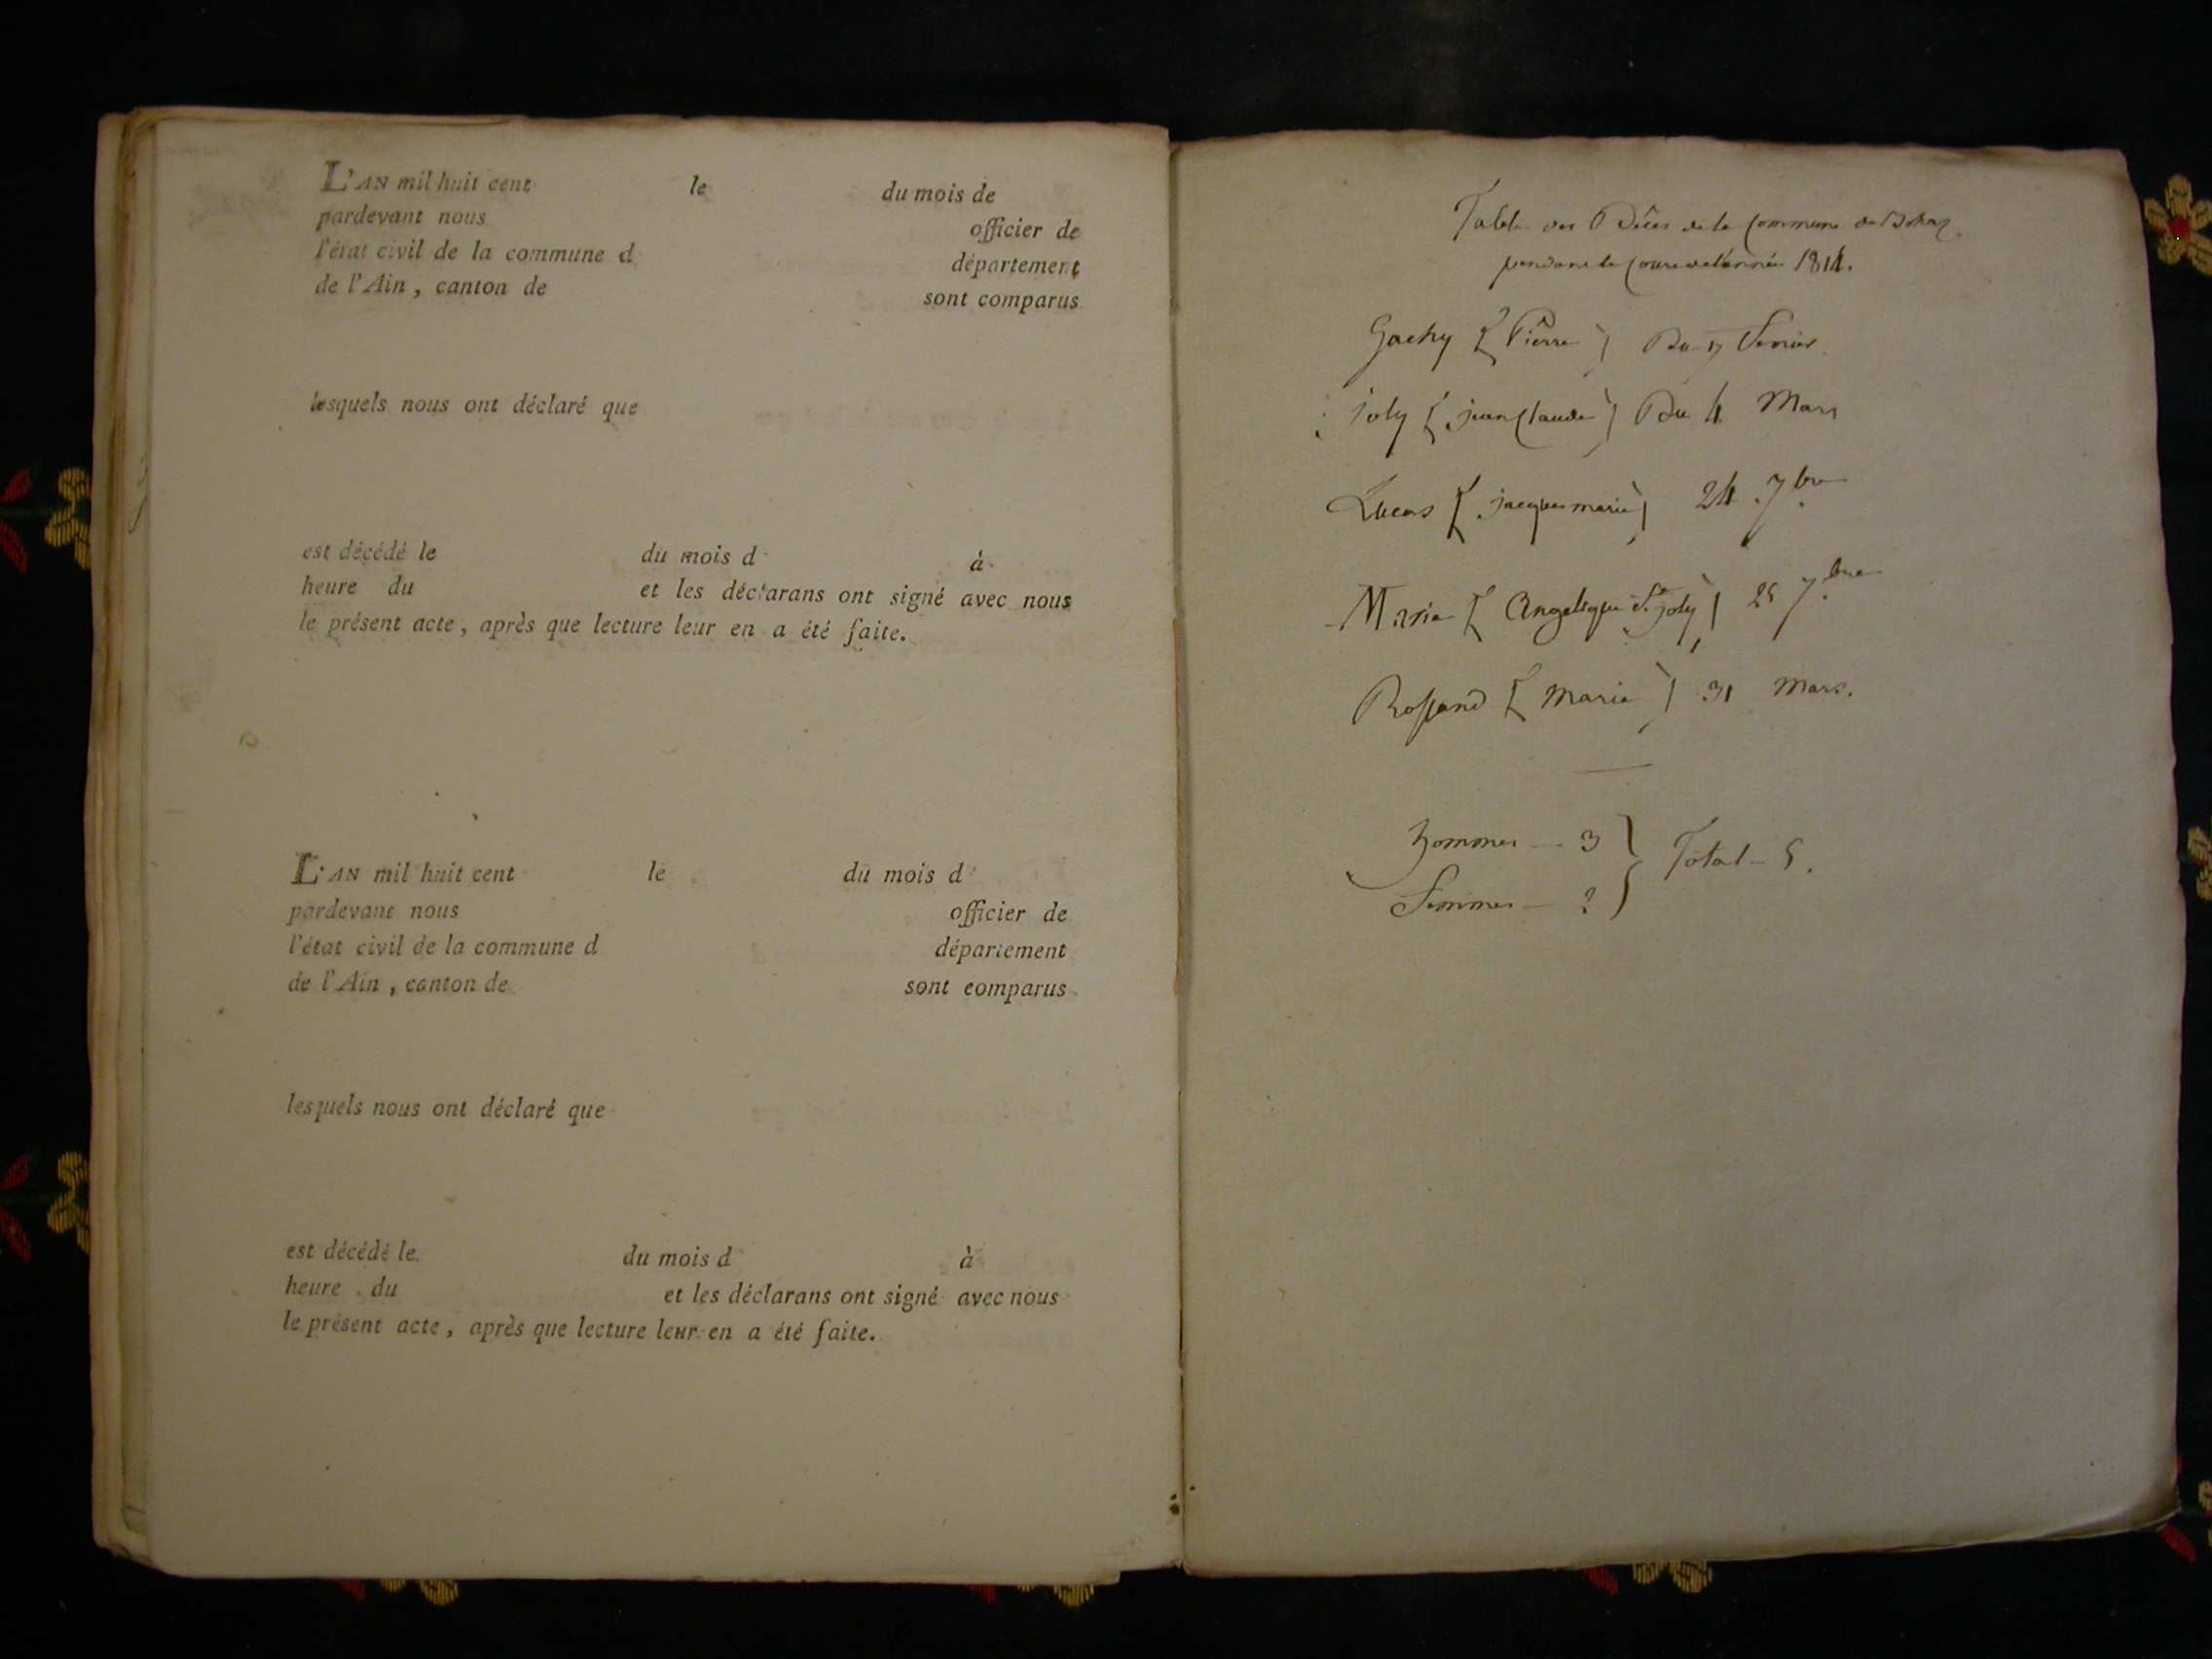 L'AN mil huit cent le du mois de
pardevant nous officier de
l'état civil de la commune d département
de l'Ain, canton de sont comparus
lesquels nous ont déclaré que
est décédé le du mois d à
heure du et les déclarans ont signé avec nous
le présent acte, après que lecture leur en a été faite.
L'AN mil huit cent le du mois d
pardevant nous officier de
l'état civil de la commune d département
de l'Ain, canton de sont comparus
lesquels nous ont déclaré que
est décédé le du mois d à
heure du et les déclarans ont signé avec nous
le présent acte, après que lecture leur en a été faite.
Table des Décès de la Commune de
pendant le Cours de l'année 1814.
Gachy { Pierre } Du 7 Fevrier
joly { jean Claude } Du 4 Mars
Lucas { jacques marie } 24 7bre
Marie { Angelique joly } 25 7bre
Rossand { Marie } 31 Mars.
hommes — 3 } Total — 5.
Femmes — 2 }